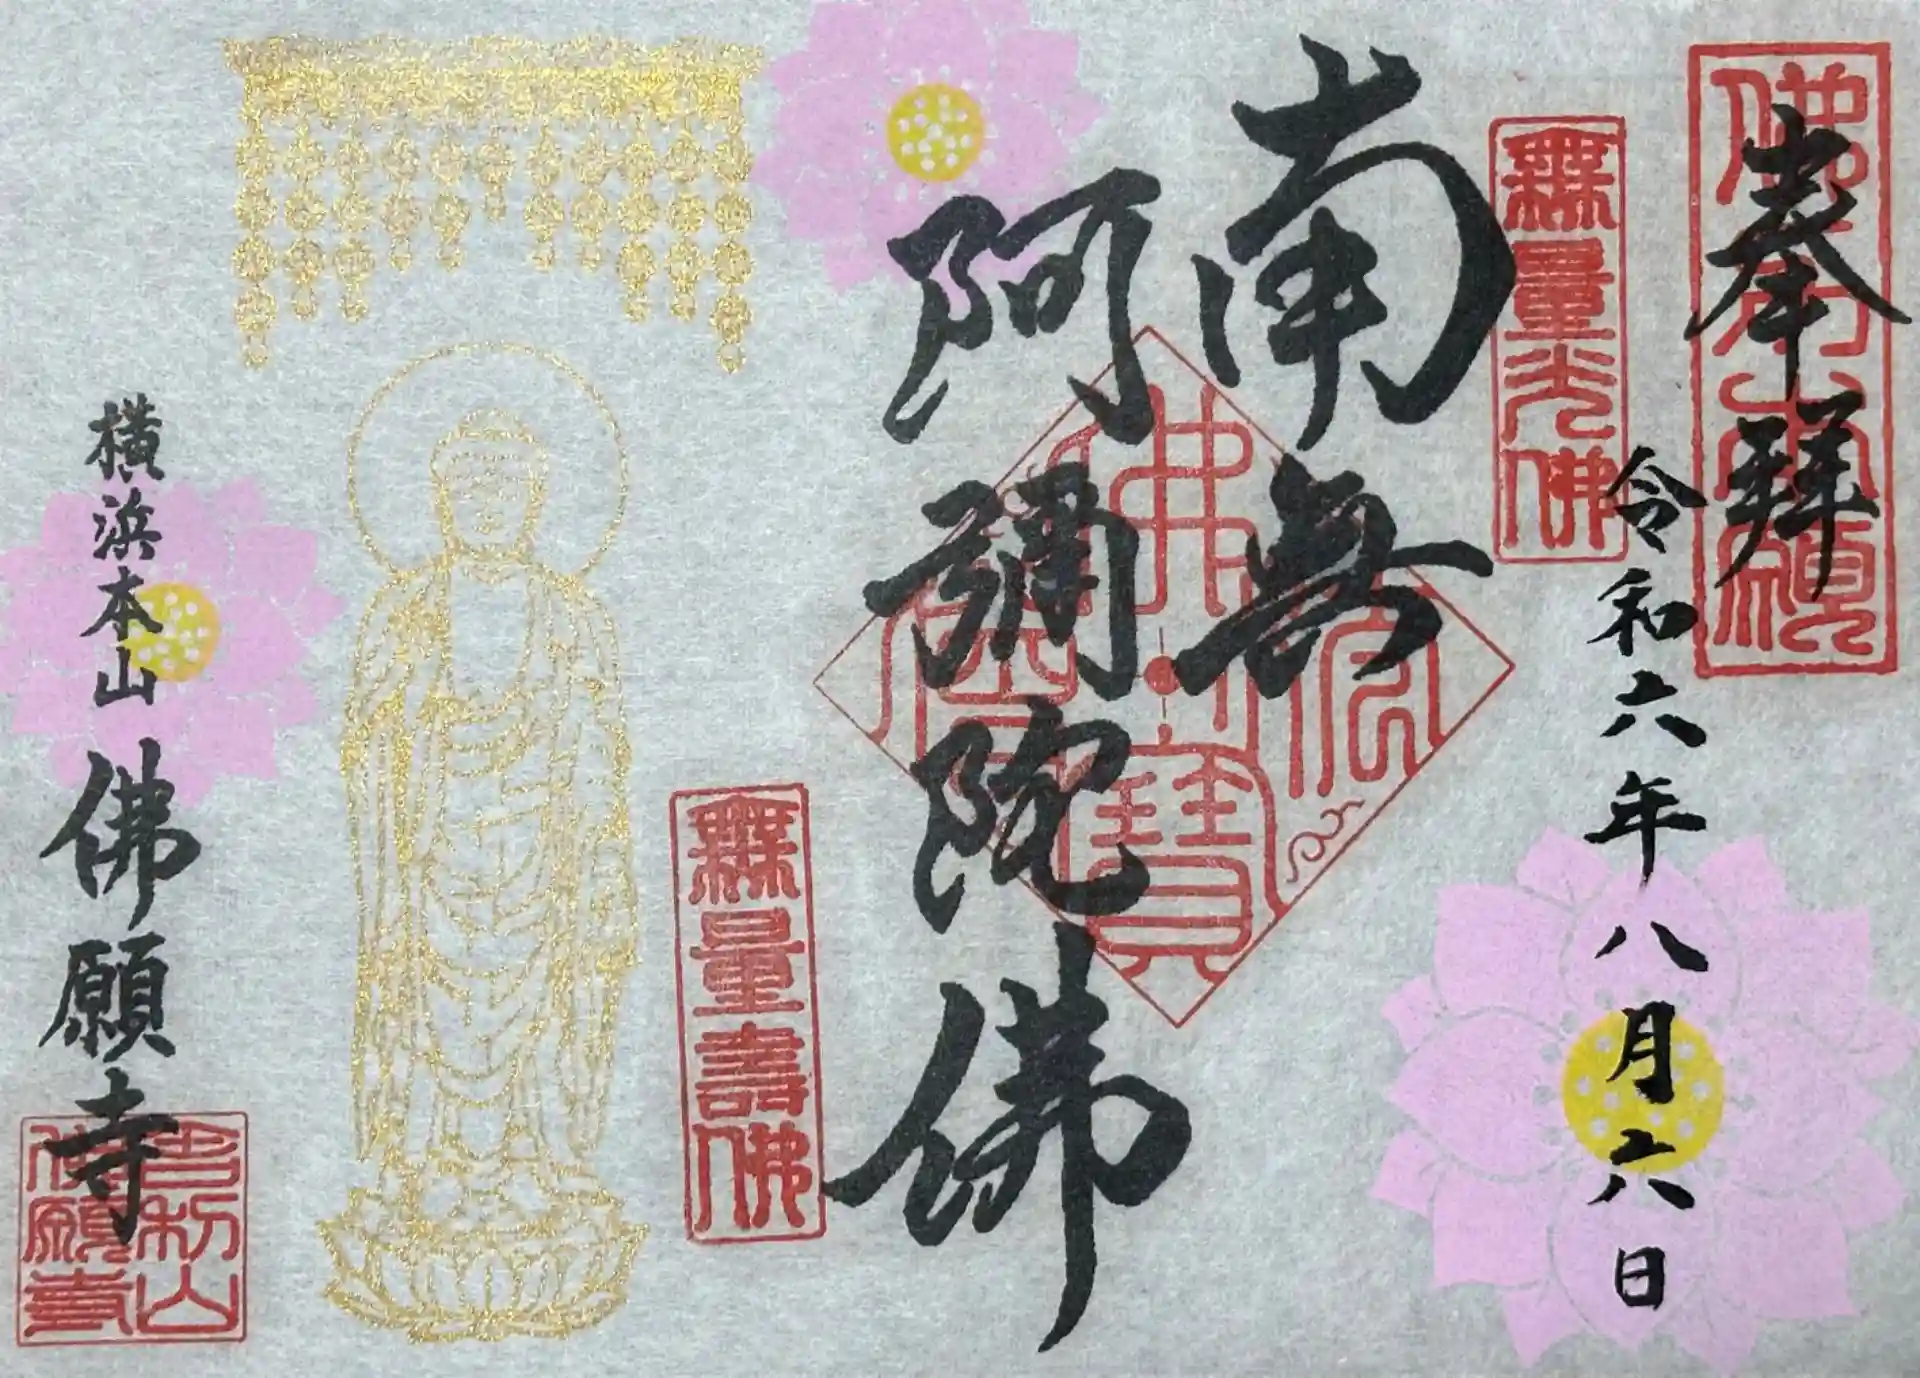 奉拜
令和六年八月六日
無量光佛
南無
阿彌陀佛
佛法僧寶
無量壽佛
横浜本山 佛願寺
佛願寺